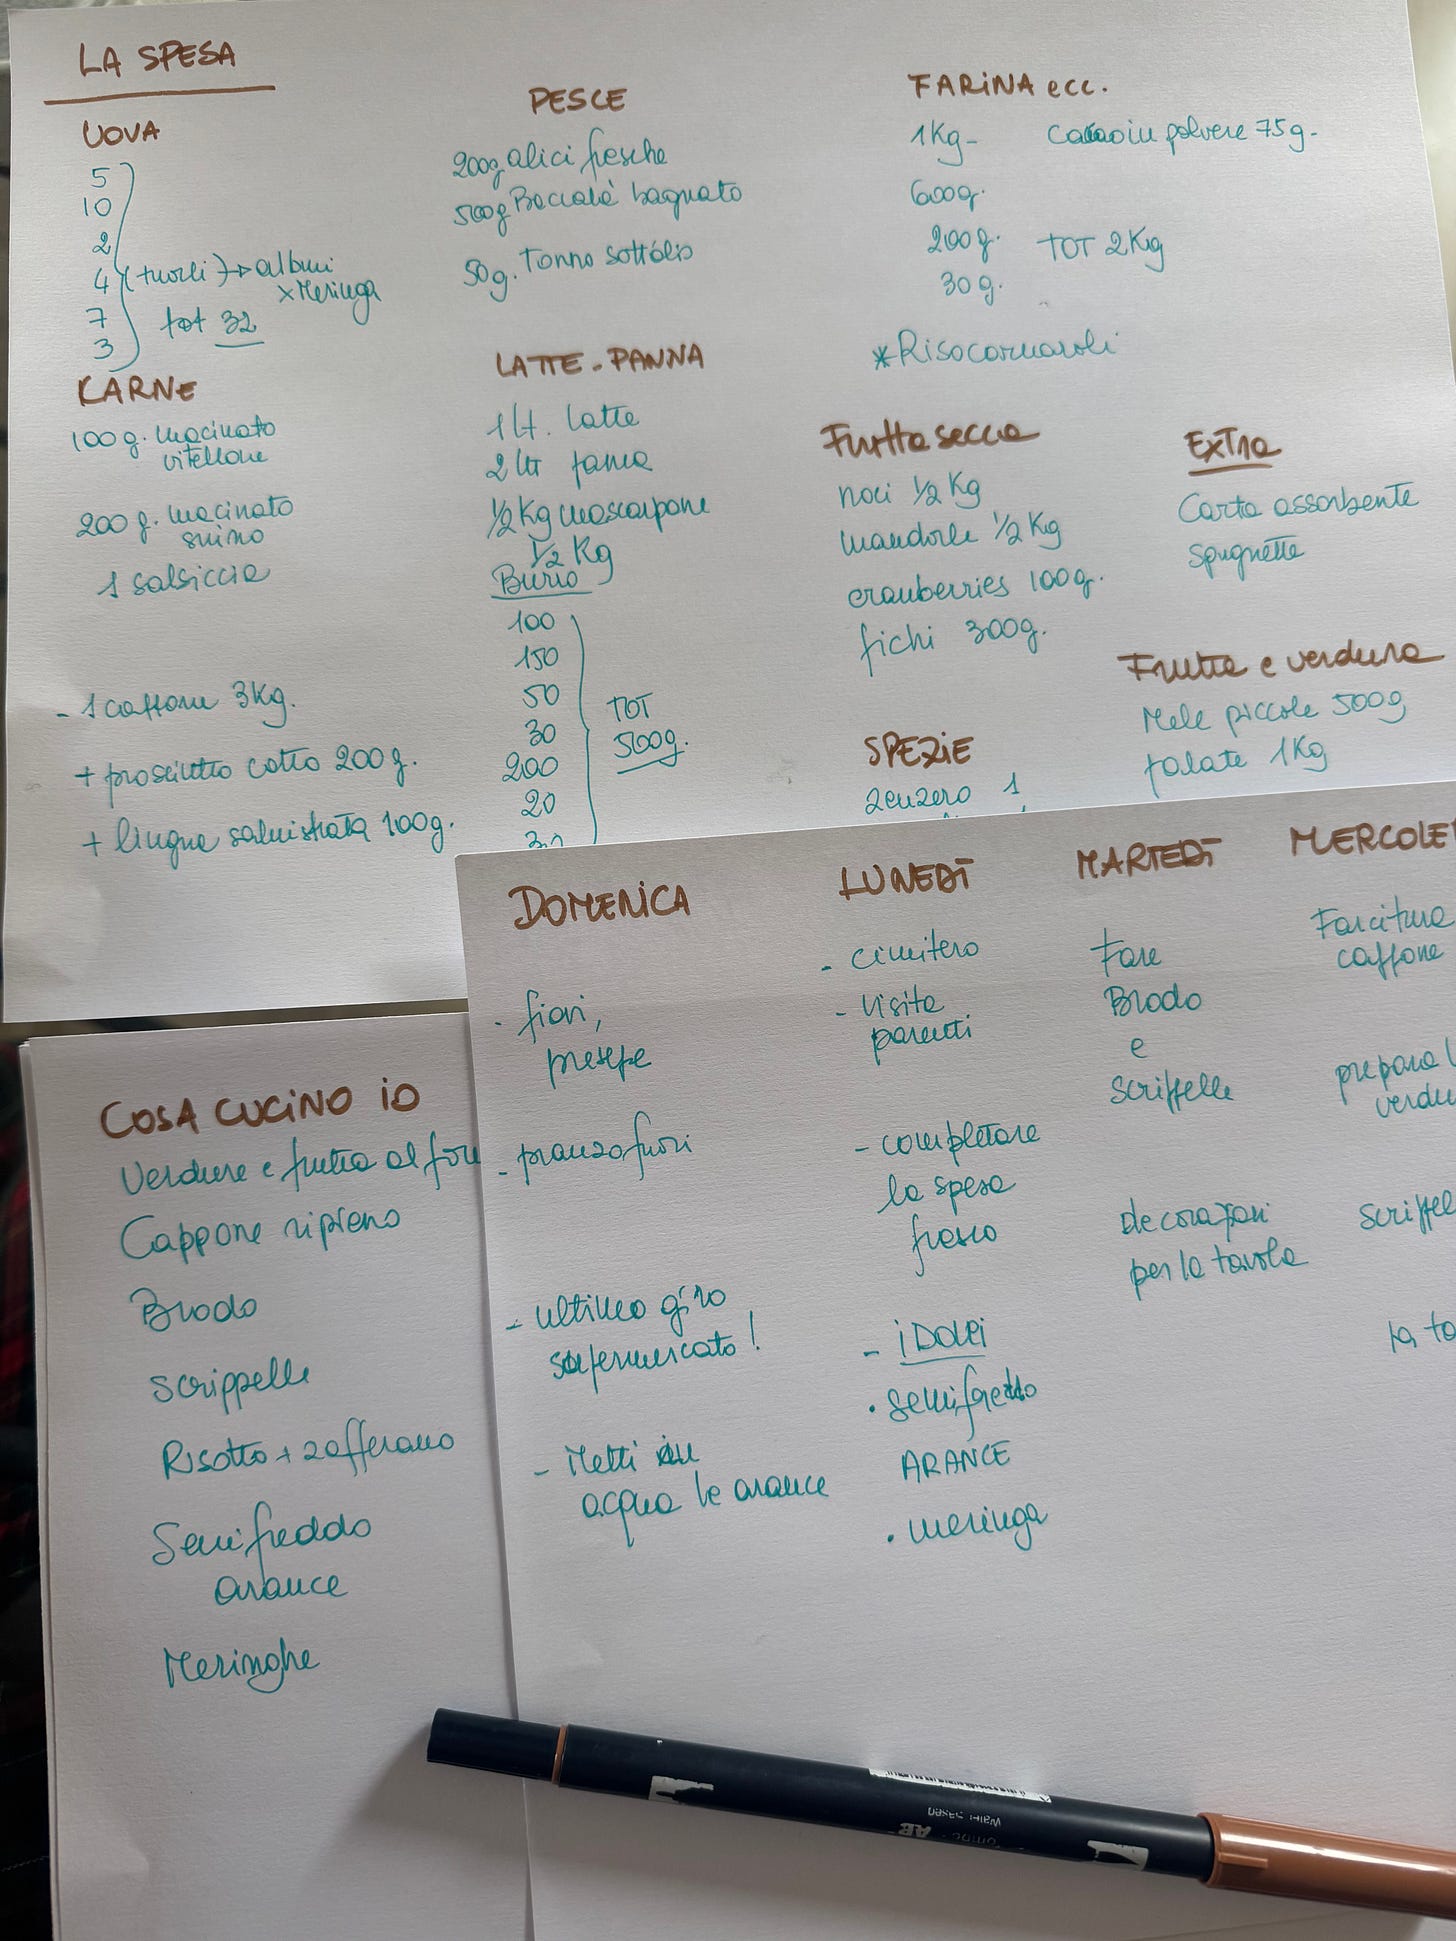 LA SPESA
UOVA
5
10
2
4 (tuorli) → albumi
x Meringa
7
3
tot 32
CARNE
100 g. macinato
vitellone
200 g. macinato
suino
1 salsiccia
- 1 cappone 3Kg.
+ prosciutto cotto 200 g.
+ lingua salmistrata 100g.
PESCE
200g alici fresche
500g Baccalà bagnato
50g. Tonno sott'olio
LATTE - PANNA
1 lt. latte
2 lt panna
1/2 Kg mascarpone
1/2 Kg
Burro
100
150
50
30
200
20
TOT
500g.
FARINA ecc.
1Kg-
600g.
200g.
30g.
cacao in polvere 75g-
TOT 2Kg
*Riso carnaroli
Frutta secca
noci 1/2 Kg
mandorle 1/2 Kg
cranberries 100g.
fichi 300g.
EXTRA
Carta assorbente
spugnette
Frutta e verdura
Mele piccole 500g
patate 1Kg
SPEZIE
zenzero 1
COSA CUCINO IO
Verdure e frutta al for
Cappone ripieno
Brodo
scrippelle
Risotto + zafferano
Semifreddo
arance
Meringhe
DOMENICA
- fiori,
presepe
- pranzo fuori
- ultimo giro
supermercato!
- Metti in
acqua le arance
LUNEDÌ
- cimitero
- visita
parenti
- completare
la spesa
fresco
- i DOLCI
. semifreddo
ARANCE
. meringa
MARTEDÌ
Fare
Brodo
e
scrippelle
decorazioni
per la tavola
MERCOLE
Farcitura
cappone
prepara l
verdu
scrippel
la to
AB